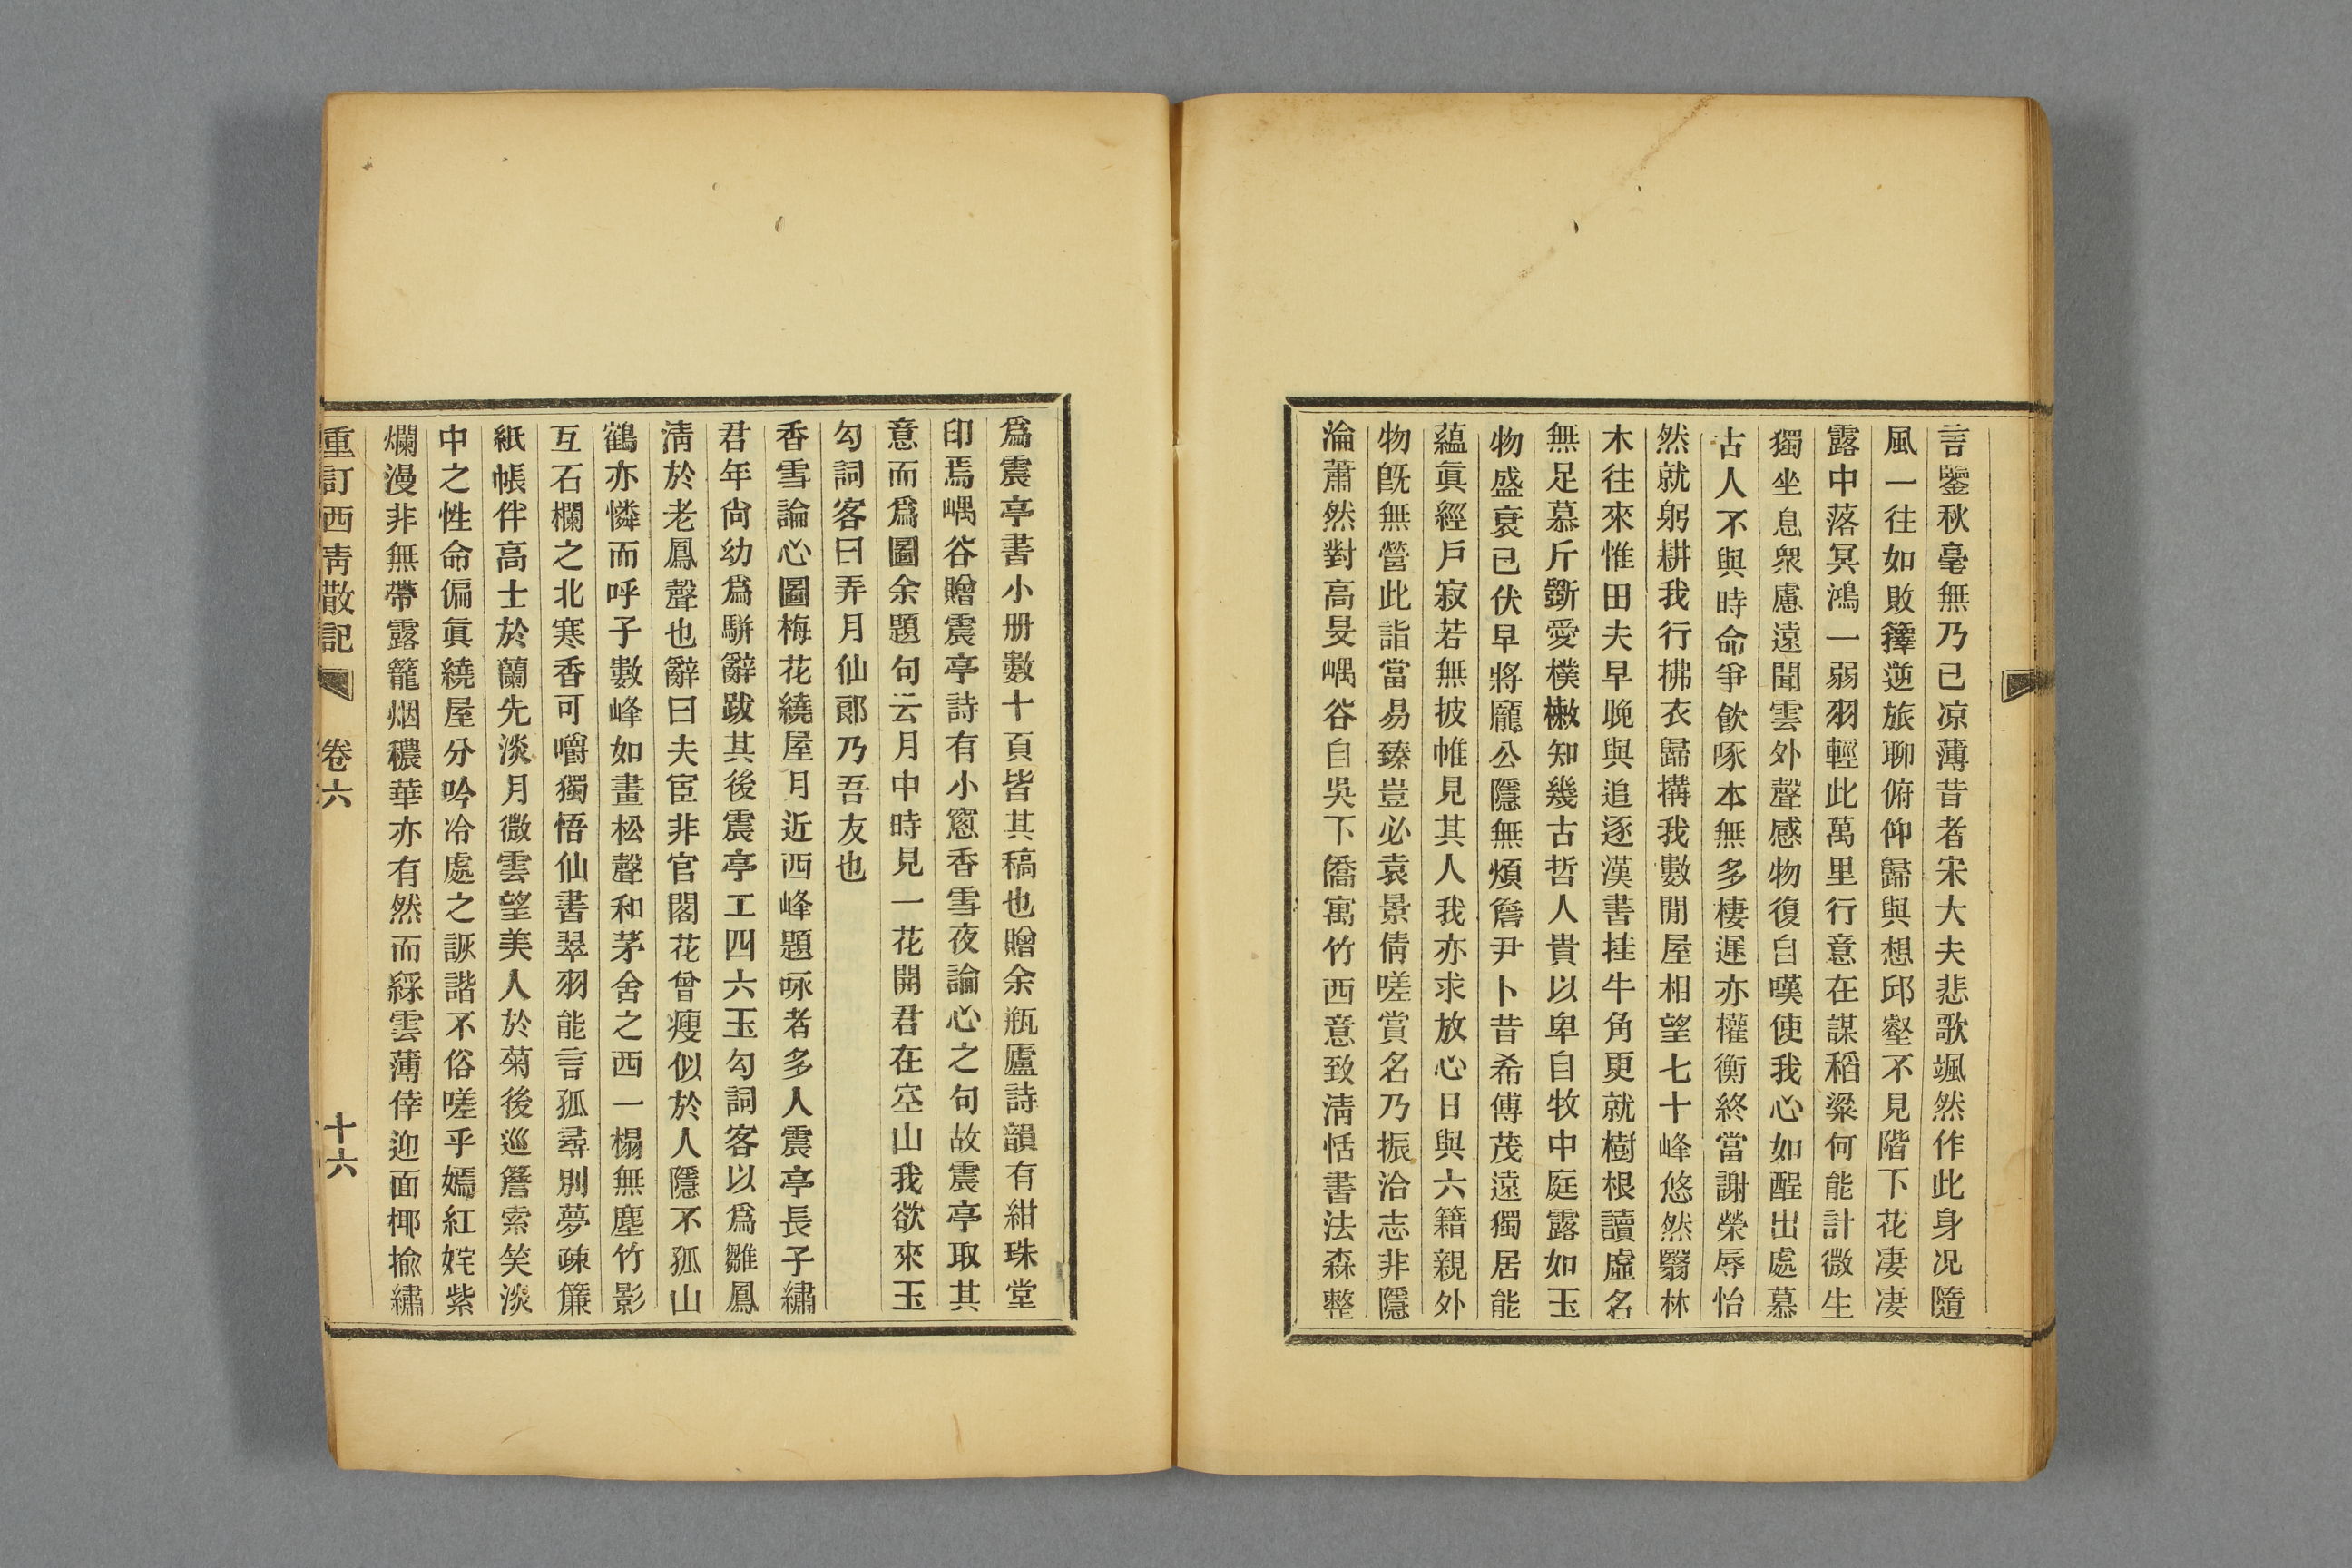 言鑒秋毫無乃已凉薄昔者宋大夫悲歌颯然作此身况隨
風一往如敗籜逆旅聊俯仰歸與想邱壑不見階下花凄凄
露中落冥鴻一弱羽輕此萬里行意在謀稻粱何能計微生
獨坐息衆慮遠聞雲外聲感物復自嘆使我心如酲出處慕
古人不與時命爭飮啄本無多棲遲亦權衡終當謝榮辱怡
然就躬耕我行拂衣歸搆我數間屋相望七十峰悠然翳林
木往來惟田夫早晚與追逐漢書挂牛角更就樹根讀虛名
無足慕斤斵愛樸樕知幾古哲人貴以卑自牧中庭露如玉
物盛衰已伏早將龐公隱無煩詹尹卜昔希傅茂遠獨居能
蘊眞經戶寂若無披帷見其人我亦求放心日與六籍親外
物旣無營此詣當易臻豈必袁景倩嗟賞名乃振洽志非隱
淪蕭然對高旻嵎谷自吳下僑寓竹西意致淸恬書法森整
爲震亭書小册數十頁皆其稿也贈余瓶廬詩韻有紺珠堂
印焉嵎谷贈震亭詩有小窻香雪夜論心之句故震亭取其
意而爲圖余題句云月中時見一花開君在空山我欲來玉
勾詞客曰弄月仙郞乃吾友也
香雪論心圖梅花繞屋月近西峰題咏者多人震亭長子繡
君年尙幼爲駢辭跋其後震亭工四六玉勾詞客以爲雛鳳
淸於老鳳聲也辭曰夫宦非官閣花曾瘦似於人隱不孤山
鶴亦憐而呼子數峰如畫松聲和茅舍之西一榻無塵竹影
互石欄之北寒香可嚼獨悟仙書翠羽能言孤尋別夢疎簾
紙帳伴高士於蘭先淡月微雲望美人於菊後巡簷索笑淡
中之性命偏眞繞屋分吟冷處之詼諧不俗嗟乎嫣紅姹紫
爛漫非無帶露籠烟穠華亦有然而綵雲薄倖迎面椰揄繡
重訂西靑散記 卷六 十六